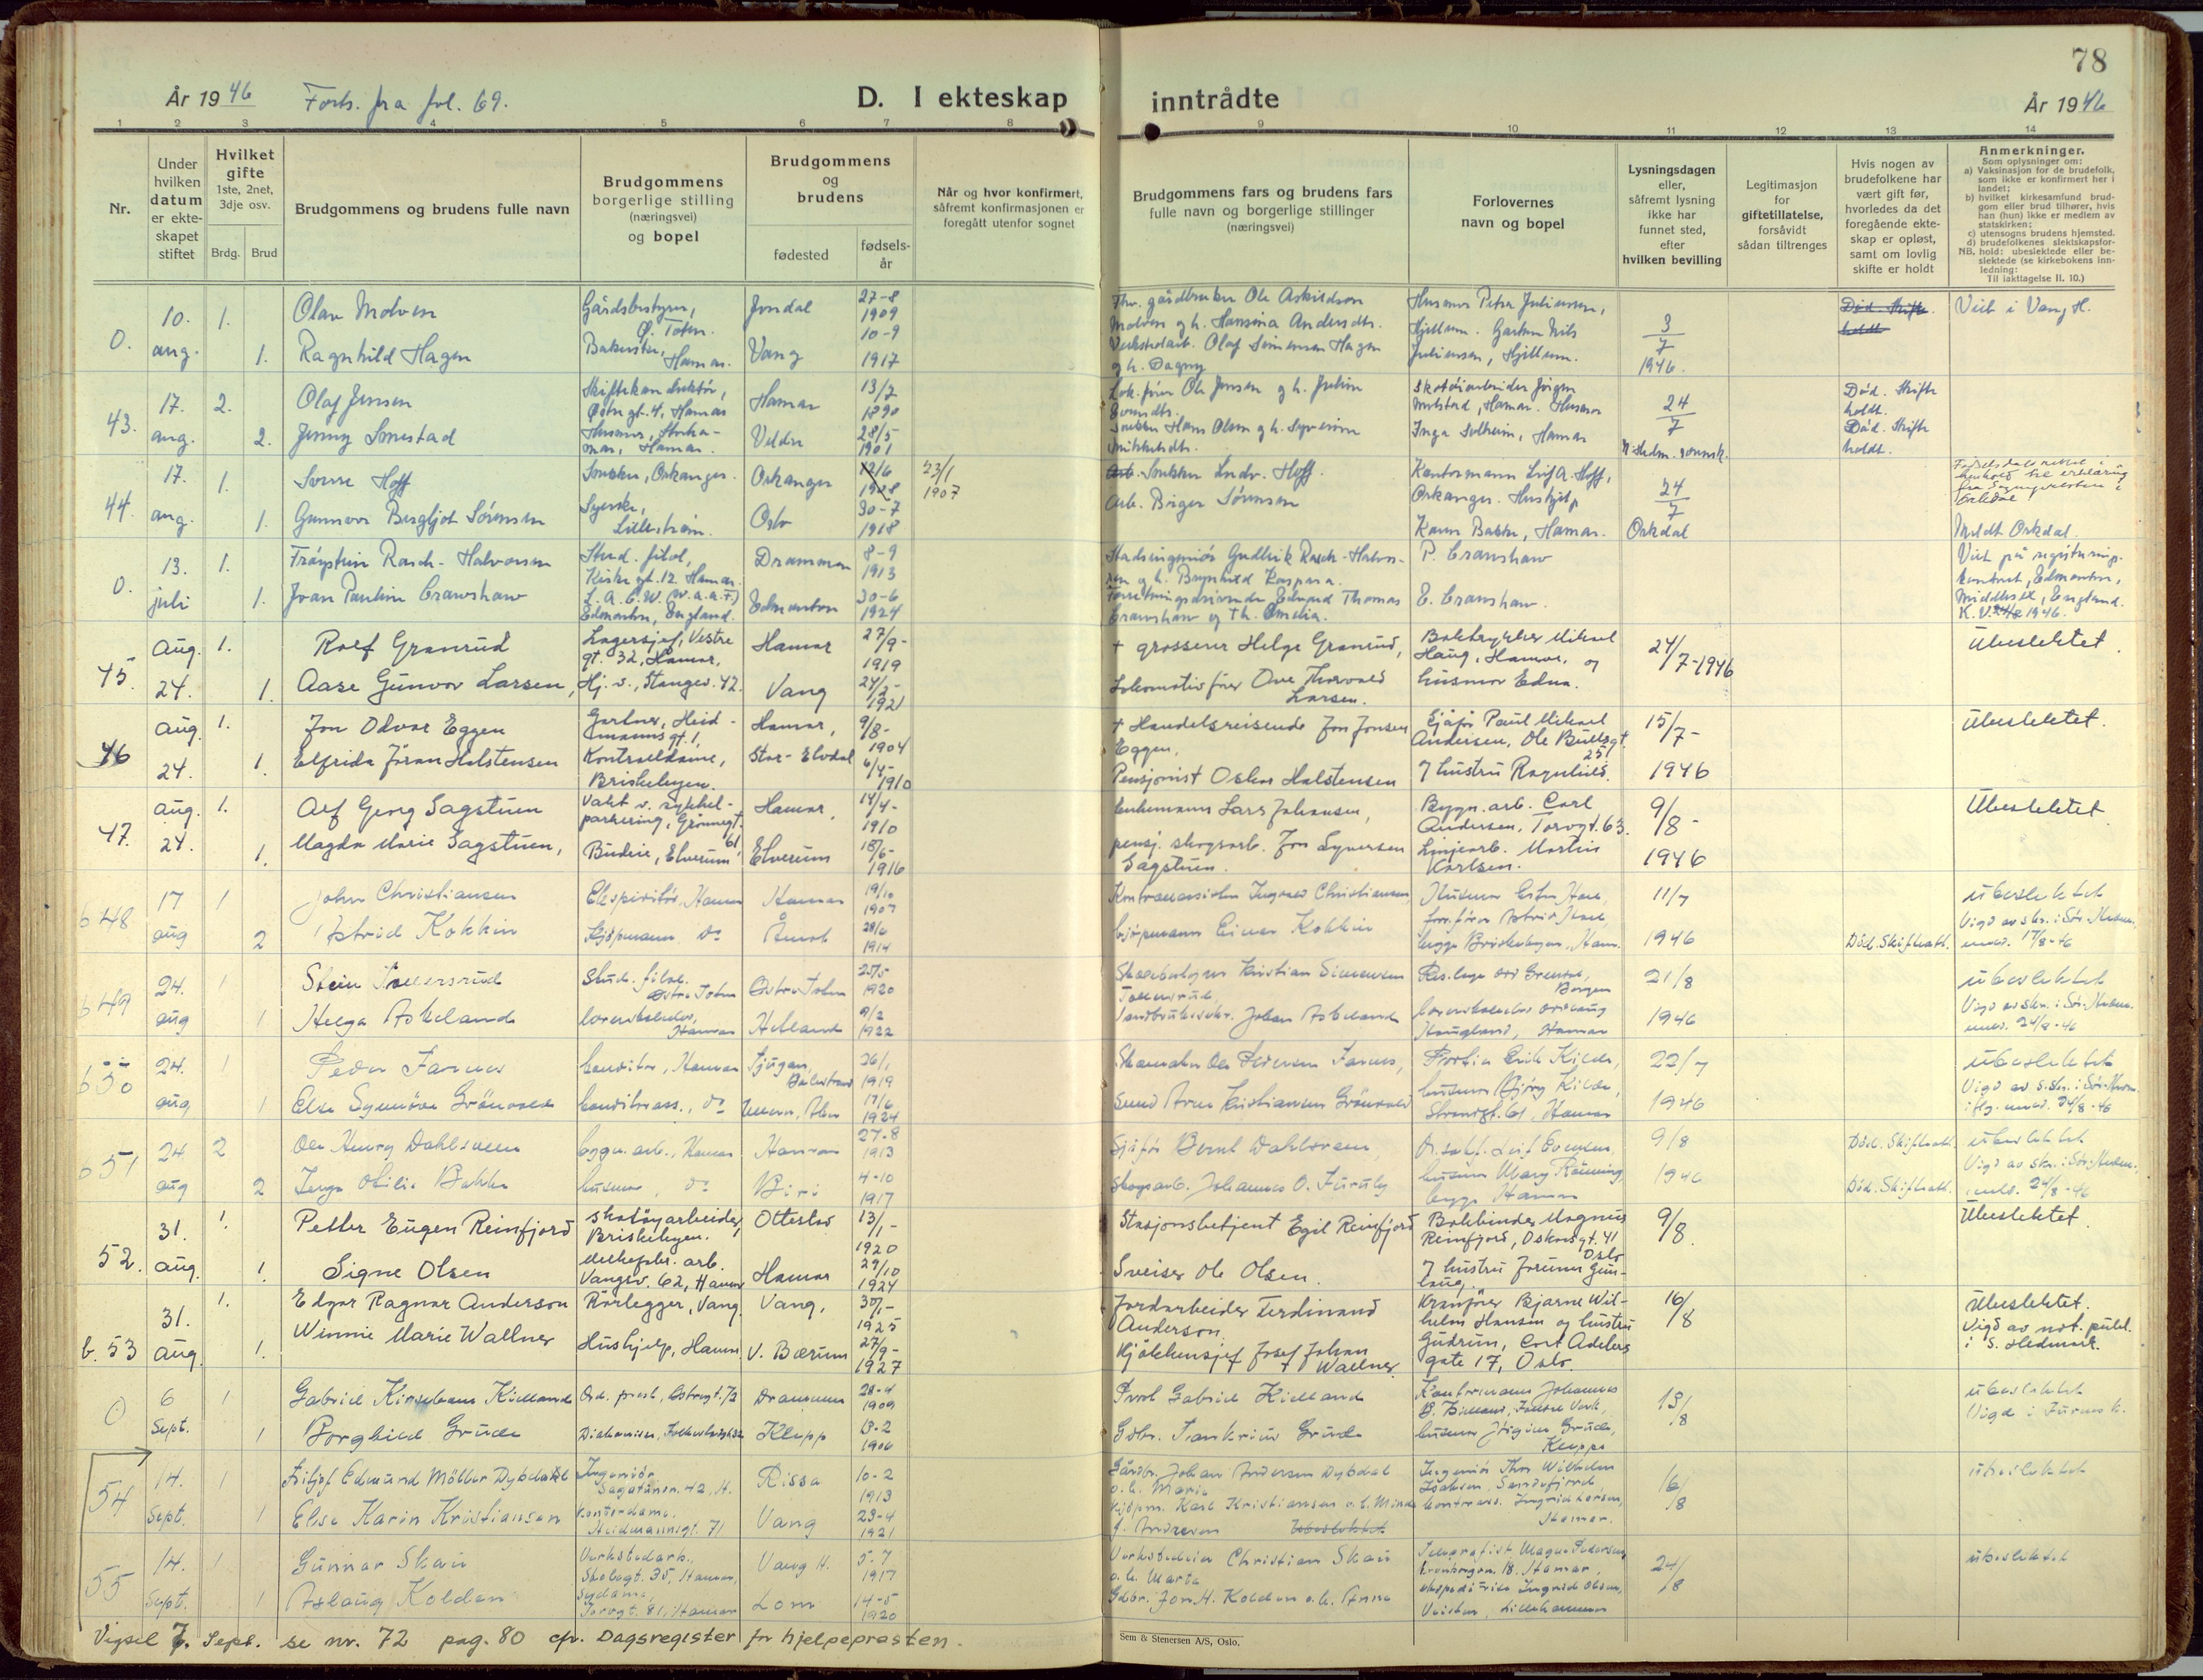 78
År 1946 Forts. fra fol. 69.
D. I ekteskap inntrådte
År 1946
1 2 3 4 5 6 7 8 9 10 11 12 13 14
Nr.
Under hvilken datum er ekteskapet stiftet
Hvilket gifte 1ste, 2net, 3dje osv.
Brdg. Brud
Brudgommens og brudens fulle navn
Brudgommens borgerlige stilling (næringsvei) og bopel
Brudgommens og brudens
fødested
fødselsår
Når og hvor konfirmert, såfremt konfirmasjonen er foregått utenfor sognet
Brudgommens fars og brudens fars fulle navn og borgerlige stillinger (næringsvei)
Forlovernes navn og bopel
Lysningsdagen eller, såfremt lysning ikke har funnet sted, efter hvilken bevilling
Legitimasjon for giftetillatelse, forsåvidt sådan tiltrenges
Hvis nogen av brudefolkene har vært gift før, hvorledes da det foregående ekteskap er opløst, samt om lovlig skifte er holdt
Anmerkninger.
Som oplysninger om:
a) Vaksinasjon for de brudefolk, som ikke er konfirmert her i landet;
b) hvilket kirkesamfund brudgom eller brud tilhører, hvis han (hun) ikke er medlem av statskirken;
c) utensogns brudens hjemsted.
d) brudefolkenes slektskapsforhold: ubeslektede eller beslektede (se kirkebokens innledning:
NB. Til iakttagelse II. 10.)
0. 10. aug. 1. Olav Molven Gårdsbestyrer, Ø. Toten. Jondal 27-8 1909
1. Ragnhild Hagen Hamar. Vang 10-9 1917
Fhv. gårdbruker Ole Askildson Molven og h. Hansina Andersdtr.
Olaf Simensen Hagen og h. Dagny
Husmor Petra Juliussen, Hjellum. Gartner Nils Juliussen, Hjellum.
3/7 1946.
Død. Skifte holdt
Viet i Vang H.
43. 17. aug. 2. Olaf Jensen Skiftekonduktør, Østre gt. 4, Hamar Hamar 13/2 1890
2. Jenny Smestad Husmor, Hamar. Veldre 28/5 1901
Lok.fører Ole Jensen og h. Juline
Snekker Hans Olsen og h. Syverine
Skotøiarbeider Jörgen Hamar. Husmor Inga Solheim, Hamar
24/7
Død. Skifte holdt.
Død. Skifte holdt.
44. 17. aug. 1. Sverre Hoff Snekker, Orkanger. Orkanger 12/6 1908 23/1 1907
1. Gunnvor Bergljot Sørensen Syerske, Lillestrøm. Oslo 30-7 1918
Snekker Hoff.
Arb. Birger Sørensen
Kontormann Leif A. Hoff, Orkanger. Hushjelp Karen Bakke, Hamar.
24/7 Orkdal
Meldt Orkdal.
0. 13. juli 1. Frøystein Rasch-Halvorsen Stud. filol, Kirkegt. 12 Hamar. Drammen 8-9 1913
1. Joan Pauline Crawshaw L.A.C.W. (W.a.a.F.) Edmonton, England. Edmonton 30-6 1924
Stadsingeniør Gudbrik Rasch-Halvorsen og h. Brynhild Kaspara.
Forretningsdrivende Edmund Thomas Crawshaw og h. Emelia.
P. Crawshaw
E. Crawshaw.
Viet på registrerings-kontoret, Edmonton, Middlesex, England.
45. aug. 24. 1. Rolf Granrud Lagersjef, Vestre gt. 32, Hamar, Hamar 27/9- 1919
1. Aase Gunvor Larsen, Hj. v., Stangev. 42. Vang 24/2- 1921
+ grosserer Helge Granrud,
Lokomotivfører Ove Thorvald Larsen.
Boktrykker Mikael Haug, Hamar, og husmor Edna.
24/7-1946
Ubeslektet.
46 aug. 24. 1. Jon Odvar Eggen Gartner, Heidmannsgt. 1, Hamar, 9/8- 1904
1. Elfrida Jöran Halstensen Kontordame, Briskebyen. Stor-Elvdal 6/4- 1910
+ Handelsreisende Jon Jonsen Eggen,
Pensjonist Oskar Halstensen
Sjåfør Paul Mikael Andersen, Ole Bullsgt. 25, og hustru Ragnhild.
15/7- 1946
Ubeslektet.
47. aug. 24. 1. Alf Georg Sagstuen Vakt v. sykkelparkering, Grønnegt. 61, Hamar, 14/4- 1910
1. Magda Marie Sagstuen, Budeie, Elverum Elverum 18/5- 1916
Enkemann Lars Johansen,
pensj. skogsarb. Jon Syversen Sagstuen.
Bygn. arb. Carl Andersen, Torvgt. 63.
Linjearb. Martin Karlsen.
9/8- 1946
Ubeslektet.
b 48 17 aug 1 John Christiansen Ekspeditør, Hamar Hamar 19/10 1907
2 Astrid Kokkin do Åmot 28/6 1914
Ingvald Christiansen
Kjøpmann Einar Kokkin
11/7 1946
Død. Skifteatt.
ubeslektet
Vigd av skr. i Sør-Hedm. 17/8-46
b 49 24. aug 1 Stein Tollersrud Stud. filol. Østre Toten Østre Toten 25/5 1920
1 Helga Askeland Hamar Hetland 9/2 1922
Kristian Simensen Tollersrud,
Johan Askeland
21/8 1946
ubeslektet
Vigd av skr. i Sør-Hedm. 24/8-46
b 50 24. aug 1 Peder Farnes Konditor, Hamar Balestrand 26/1 1919
1 Else Synnöve Grönvold Konditorass., do 17/6 1924
Skomaker Ole Pedersen Farnes,
Smed Arne Kristiansen Grönvold
Erik Kilde, husmor Bjørg Kilde, Strandgt. 61, Hamar
22/7 1946
ubeslektet
Vigd av s.skr. i Sør-Hedm. iflg. meld. 24/8-46
b 51 24 aug 2 Ole Henry Dahlsveen bygn. arb., Hamar Hamar 27-8 1913
2 Inga Otilie Bakke husmor, do Biri 4-10 1917
Sjåfør Bernt Dahlsveen,
skogsarb. Johannes O. Furuly
Leif Evensen, husmor Mary Rönning, begge Hamar
9/8 1946
Død. Skifteatt.
Død. Skifteatt.
ubeslektet
Vigd av skr. i Sør-Hedm. 24/8-46
52. 31. aug. 1. Petter Eugen Reinfjord skotøyarbeider, Briskebyen. Ottestad 13/1- 1920
1. Signe Olsen Melkefabr. arb. Vangsv. 62, Hamar Hamar 29/10 1924
Stasjonsbetjent Egil Reinfjord
Sveiser Ole Olsen.
Bokbinder Magnus Reinfjord, Oskarsgt. 41 Oslo og hustru Jorunn Gunlaug.
9/8.
Ubeslektet.
b. 53 31. aug. 1. Edgar Ragnar Anderson Rørlegger, Vang. Vang, 30/1- 1925
1. Winnie Marie Wallner Hushjelp, Hamar V. Bærum 27/9- 1927
Jordarbeider Ferdinand Anderson.
Kjøkkensjef Josef Johan Wallner.
Kranfører Bjarne Wilhelm Hansen og hustru Gudrun, Cort Adelers gate 17, Oslo.
16/8
Ubeslektet.
Vigd av not. publ. i S. Hedmark.
0 6 Sept. 1 Gabriel Kirsebom Kielland Ord. prest, Drammen 28-4 1909
1 Borghild Grude Diakonisse, Klepp 13-2 1906
Prost Gabriel Kielland
Gdbr. Tankrius Grude
Kontormann Johannes
13/8
ubeslektet
Vigd i Furnes k.
54 14. Sept. 1 Fritjof Edmund Möller Dybdahl Ingeniör Sagatunv. 42, H. Rissa 10-2 1913
1 Else Karin Kristiansen Kontordame, Heidmannsgt. 71 Vang 23-4 1921
Gårdbr. Johan Andersen Dybdal o.h. Marie
Kjöpm. Karl Kristiansen o.h. Minda f. Andresen Ubeslektet
Ingeniör Thor Wilhelm Isaksen, Sandefjord
Kontorass. Ingrid Larsen, Hamar.
16/8
ubeslektet
55 14. Sept. 1 Gunnar Skau Verkstedarb., Skolegt. 35, Hamar, Vang H. 5-7 1917
1 Aslaug Kolden Sydame, Torvgt. 81, Hamar Lom 14-5 1920
Verkstedeier Christian Skau o.h. Marta
Gdbr. Jon H. Kolden o.h. Anna
Telegrafist Magne Pedersen, Hamar,
Ingrid Olsen, Lillehammer
24/8
ubeslektet
Vigsel 7. Sept. se nr. 72 pag. 80 cfr. Dagsregister for hjelpepresten.
Sem & Stenersen A/S, Oslo.